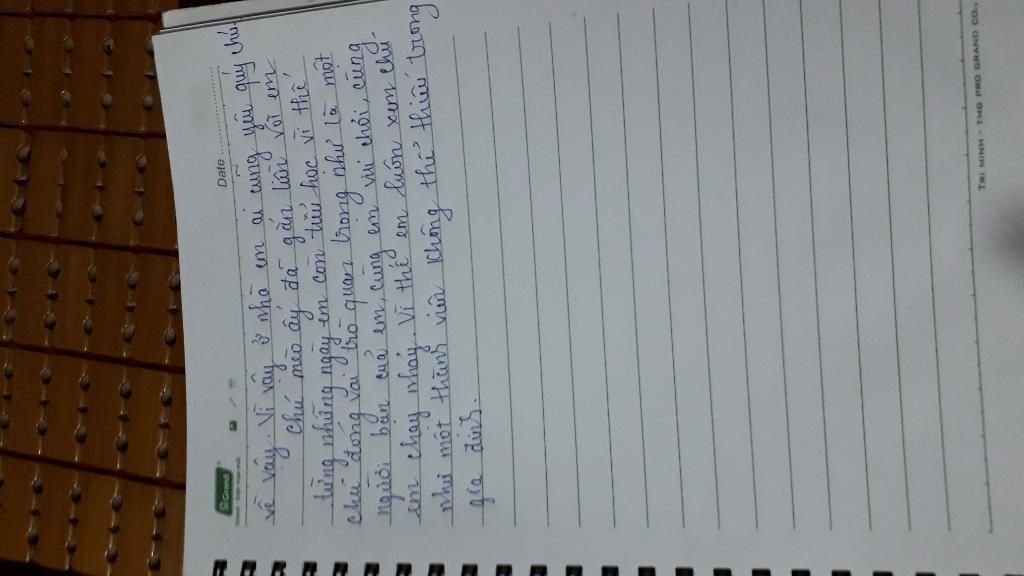 Grand
Date
về vậy. Vì vậy ở nhà em ai cũng yêu quý chú
chú mèo ấy đã gắn liền với em
từng những ngày em còn tiểu học vì thế
chú đóng vai trò quan trọng như là một
người bạn của em, cùng em vui chơi, cùng
em chạy nhảy. Vì thế em luôn xem chú
như một thành viên không thể thiếu trong
gia đình.
TRI MINH - TMG PRO GRAND CO.,